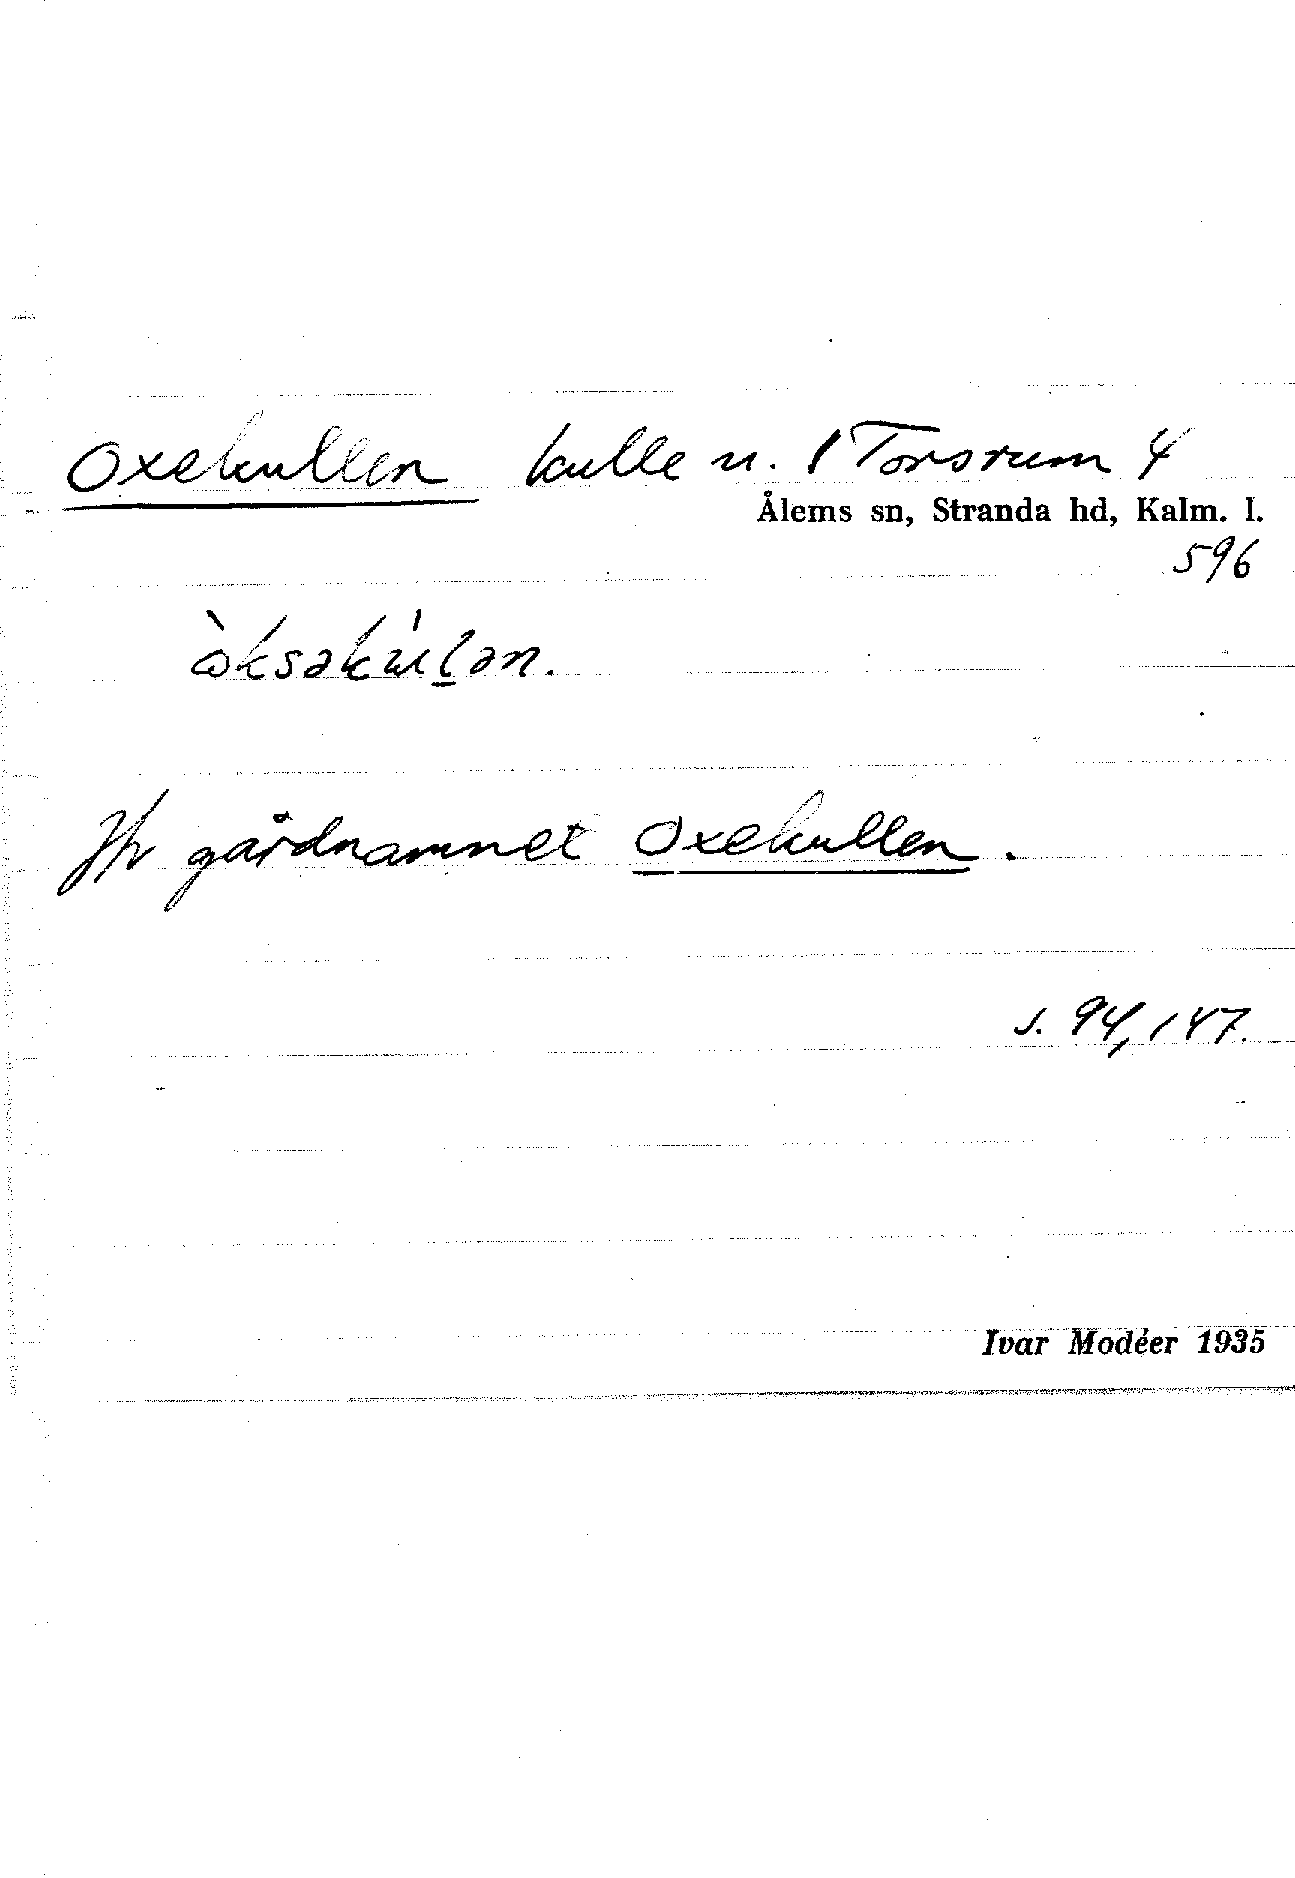 Oxekullen kulle n. / Torsrum 4
Ålems sn, Stranda hd, Kalm. l.
596
ò̀ksəkúl̲ən.
Jfr gårdnamnet Oxekullen.
s. 94, 147.
Ivar Modéer 1935